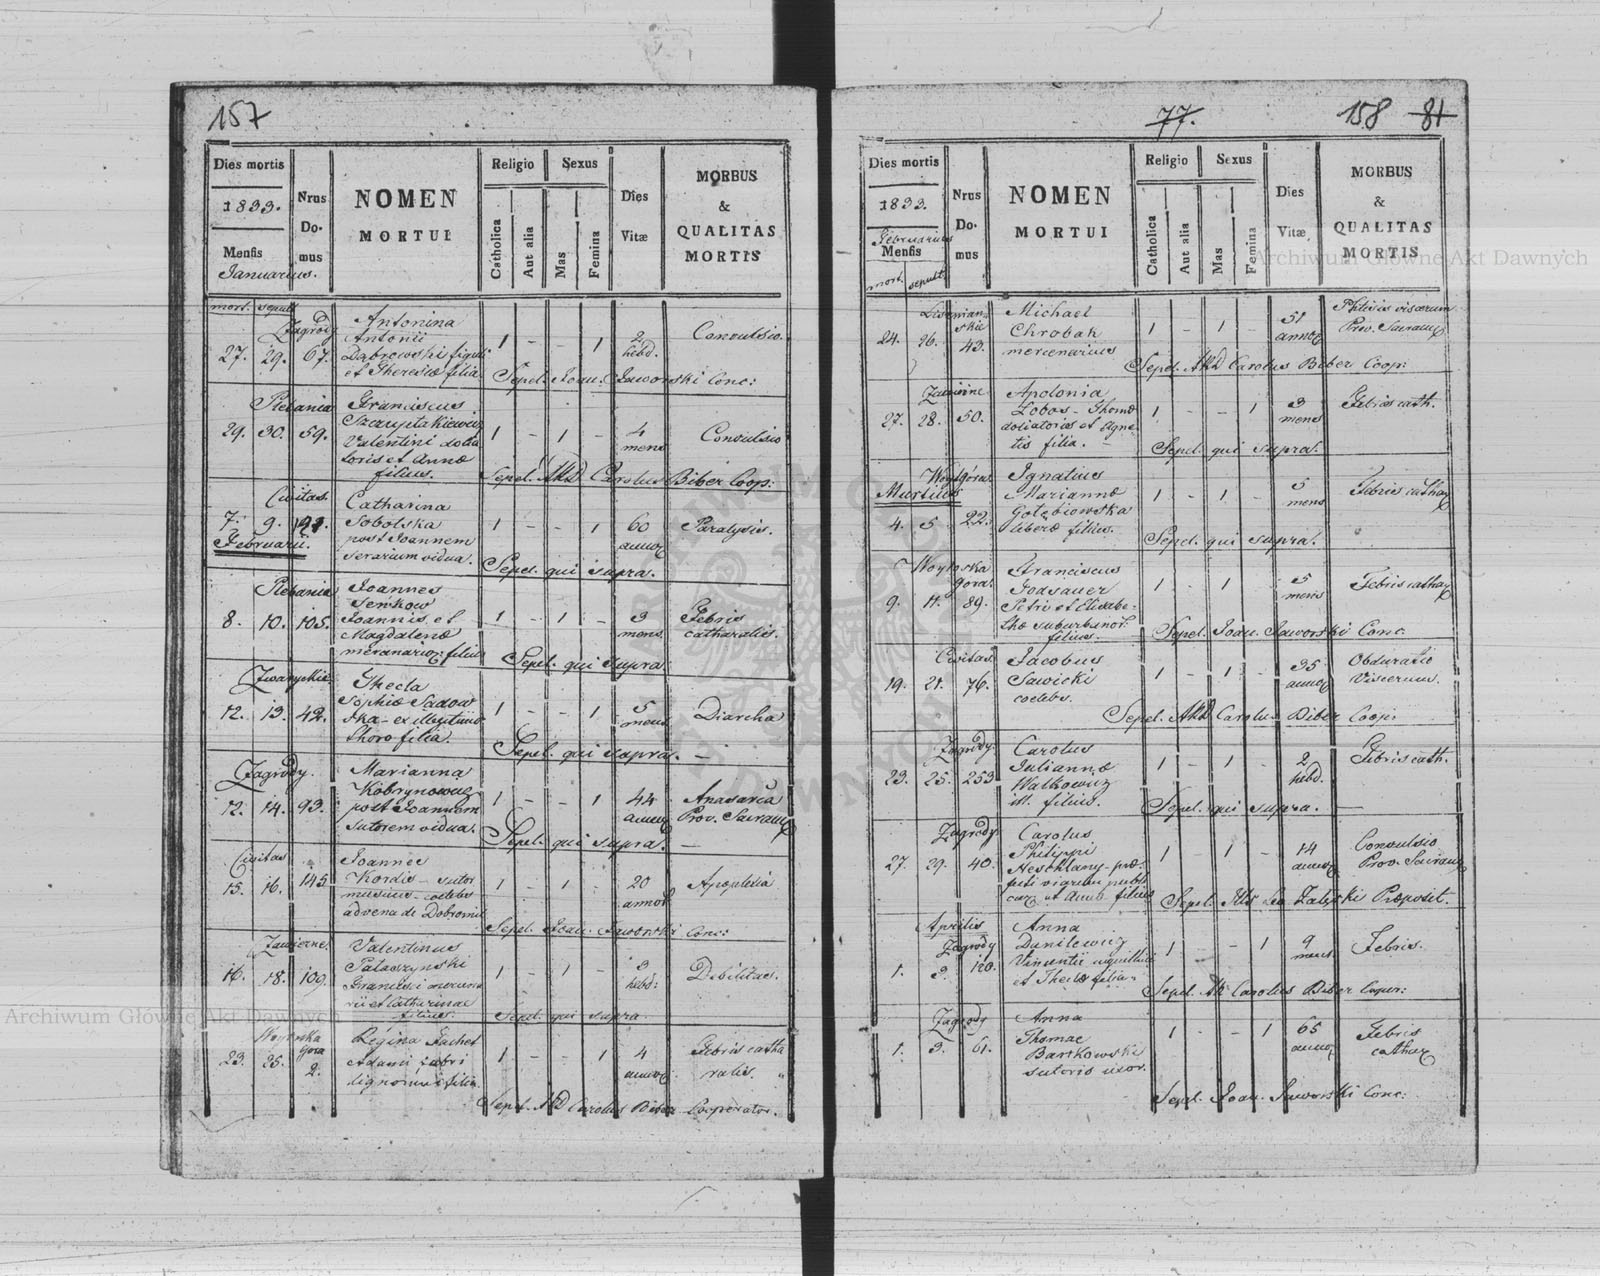 157
Dies mortis
1833.
Mensis
Januarius.
Nrus
Do-
mus
NOMEN
MORTUI
Religio
Catholica
Aut alia
Sexus
Mas
Femina
Dies
Vitæ
MORBUS
&
QUALITAS
MORTIS
mort. sepult.
Zagrody
27. 29. 67.
Antonina
Antonii
Dąbrowski figuli
et Theresiæ filia
1 - - 1
2
hebd.
Convulsio.
Sepel. Joan. Jaworski Conc:
Plebania
29. 30. 59.
Franciscus
Valentini dolia
toris et Annæ
filius.
1 - 1 -
4
mens
Convulsio
Sepel. Carolus Biber Coop:
Civitas
7. 9. 191.
Februarii.
Catharina
Sobolska
post Joannem
serarium vidua.
1 - - 1
60
annor
Paralysis.
Sepel. qui supra.
Plebania
8. 10. 105.
Joannes
Senkow
Joannis et
Magdalenæ
filius
1 - 1 -
3
mens.
Febris
catharalis.
Sepel. qui supra.
12. 13. 42.
Thecla
Sophiæ Sadow
ska - ex illegitimo
thoro filia.
1 - - 1
5
mens
Diarrhea
Sepel. qui supra. —
Zagrody.
12. 14. 93.
Marianna
Kobrynowicz
post Joannem
sutorem vidua.
1 - - 1
44
annor
Anasarca
Prov. Sacram
Sepel. qui supra. —
Civitas
15. 16. 145
Joannes
Kordis - sutor
coelebs
advena de Dobromil
1 - 1 -
20
annor
Apoplexia
Sepel. Joan. Jaworski Conc:
16. 18. 109.
Valentinus
Francisci
et Catharinae
filius.
1 - 1 -
3
hebd:
Debilitas.
Sepel. qui supra.
Woytoska
Gora
23. 25. 2.
Regina Fachet
Adami fabri
lignarii filia
1 - - 1
4
annor
Febris catha
ralis.
Sepel. Carolus Biber Cooperator.
77.
158 81
Dies mortis
1833.
Februarius
Mensis
mort. sepult
Nrus
Do-
mus
NOMEN
MORTUI
Religio
Catholica
Aut alia
Sexus
Mas
Femina
Dies
Vitæ
MORBUS
&
QUALITAS
MORTIS
24. 26. 43.
Michael
Chrobak
mercenarius
1 - 1 -
51
annor
Phtisis viscerum
Prov. Sacram
Sepel. Carolus Biber Coop:
27. 28. 50.
Apolonia
Zobos - Thomæ
doliatoris et Agne
tis filia. -
1 - - 1
3
mens
Febris cath.
Sepel. qui supra.
Woyt Góra
Martius
4. 5. 22.
Ignatius
Mariannæ
Gołębiowska
liberæ filius.
1 - 1 -
5
mens
Febris cathar
Sepel. qui supra.
Woytoska
Gora
9. 11. 89.
Franciscus
Petri et Elisabe-
thæ suburbanor
filius.
1 - 1 -
5
mens
Febris cathar
Sepel. Joan. Jaworski Conc.
Civitas
19. 21. 76.
Jacobus
Sawicki
coelebs.
1 - 1 -
35
annor
Obduratio
Viscerum.
Sepel. Carolus Biber Coop:
Zagrody.
23. 25. 253
Carolus
Juliannæ
Walkowicz
ill. filius.
1 - 1 -
2
hebd.
Febris cath.
Sepel. qui supra. —
Zagrody
27. 29. 40.
Carolus
Philippi
præ-
fecti viarum publi
car et Annæ filius
1 - 1 -
14
annor
Convulsio
Prov. Sacram
Sepel. Leo Præposit.
Aprilis
Zagrody
1. 3. 120.
Anna
Danilewicz
Vincentii
et Theclæ filia
1 - - 1
9
mens.
Febris.
Sepel. Carolus Biber Cooper:
Zagrody
1. 3. 61.
Anna
Thomae
Bartkowski
sutoris uxor.
1 - - 1
65
annor
Febris
cathar
Sepel. Joan. Jaworski Conc:
Archiwum Główne Akt Dawnych
Archiwum Główne Akt Dawnych